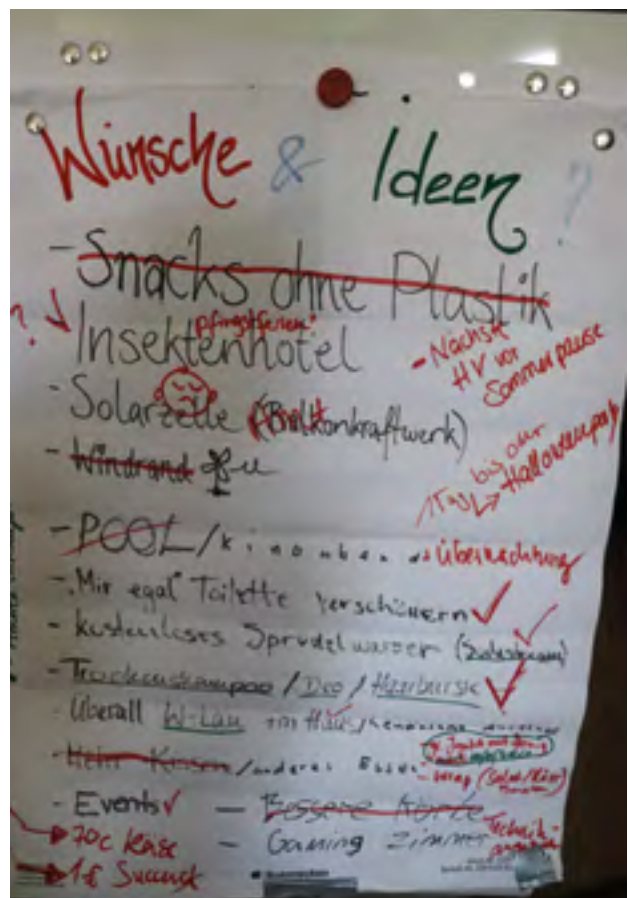 Wünsche & Ideen ?
- Snacks ohne Plastik
? ✓ Insektenhotel
pfingstferien"
- Nächste
HV vor
Sommerpause
- Solarzelle (Balkonkraftwerk)
- Windrand
1 Tag bis
Halloween
- POOL / Kinoabend
Übernachtung
- "Mir egal" Toilette verschönern ✓
- kostenloses Sprudelwasser ✓
- Trockenshampoo / Deo / Haarbürste ✓
- Überall W-Lan im Haus
- Mehr Kissen / anderes Essen
- Wrap (Salat/Käse)
- Events ✓
- Bessere
- Gaming Zimmer
Technik
70c Käse
1€